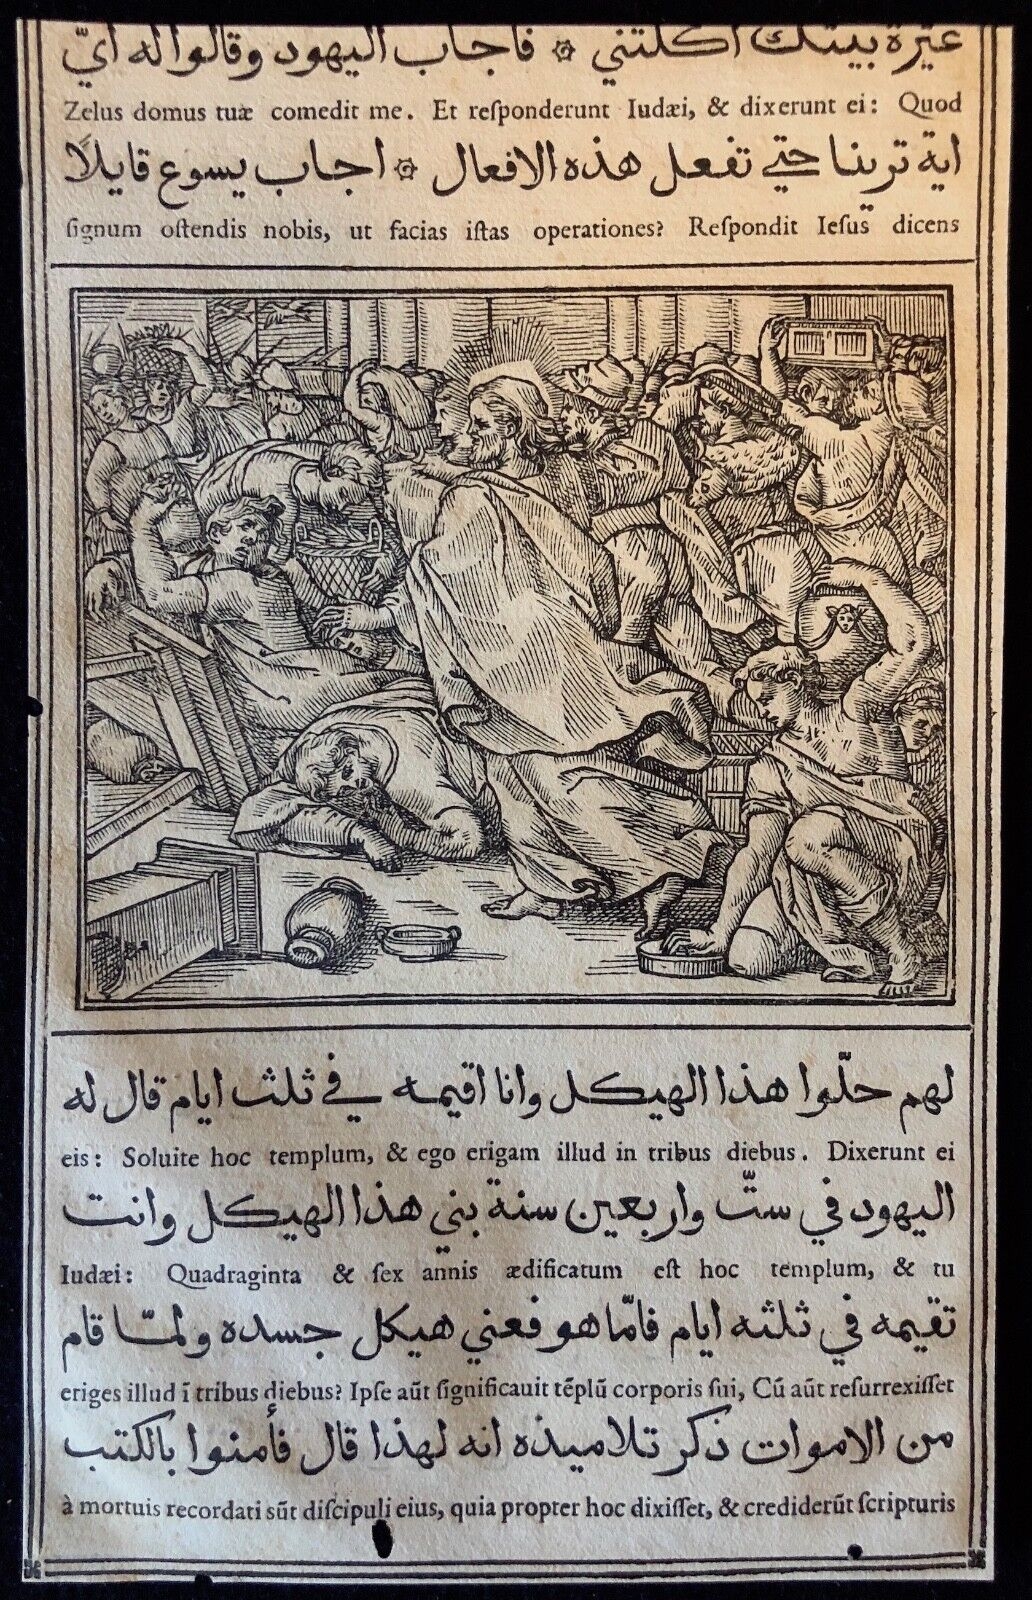 غيرة بيتك اكلتني ۞ فاجاب اليهود وقالوا له ايّ
Zelus domus tuæ comedit me. Et reſponderunt Iudæi, & dixerunt ei: Quod
اية ترينا حتي تفعل هذه الافعال ۞ اجاب يسوع قايلًا
ſignum oſtendis nobis, ut facias iſtas operationes? Reſpondit Ieſus dicens
لهم حلّوا هذا الهيكل وانا اقيمه في ثلث ايام قال له
eis: Soluite hoc templum, & ego erigam illud in tribus diebus. Dixerunt ei
اليهود في ستّ واربعين سنة بني هذا الهيكل وانت
Iudæi: Quadraginta & ſex annis ædificatum eſt hoc templum, & tu
تقيمه في ثلثه ايام فامّا هو فعني هيكل جسده ولمّا قام
eriges illud ĩ tribus diebus? Ipſe aũt ſignificauit tẽplũ corporis ſui, Cũ aũt reſurrexiſſet
من الاموات ذكر تلاميذه انه لهذا قال فأمنوا بالكتب
à mortuis recordati sũt diſcipuli eius, quia propter hoc dixiſſet, & crediderũt ſcripturis